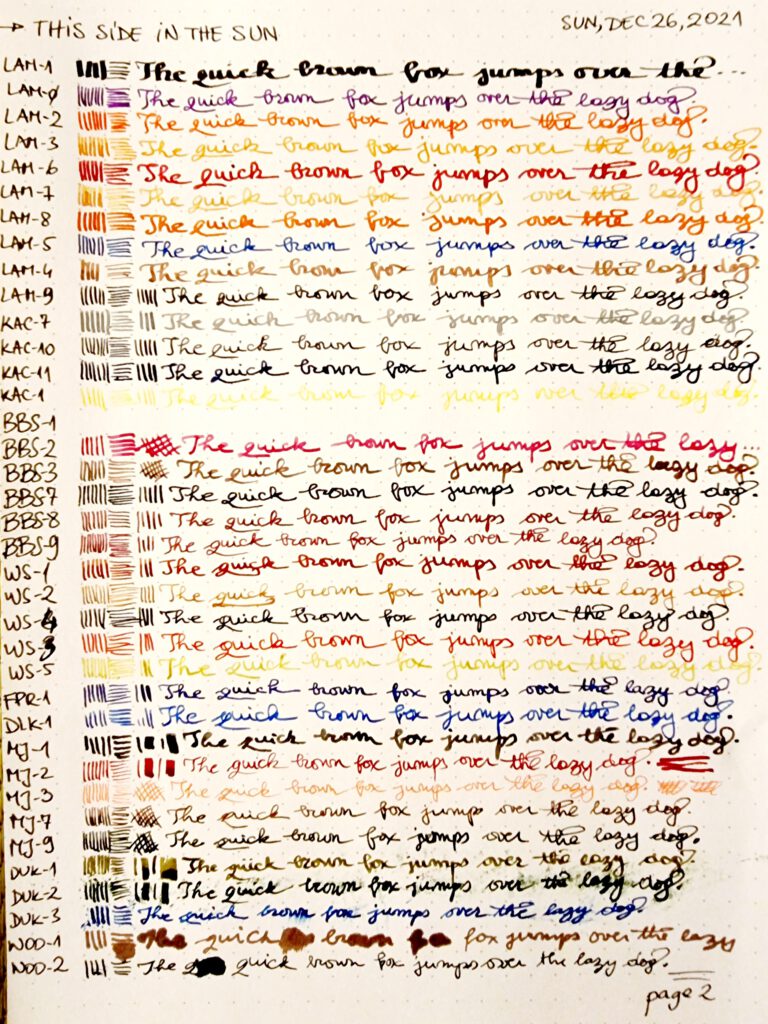 → THIS SIDE IN THE SUN SUN, DEC 26, 2021
LAM-1 The quick brown fox jumps over the...
LAM-0 The quick brown fox jumps over the lazy dog.
LAM-2 The quick brown fox jumps over the lazy dog.
LAM-3 The quick brown fox jumps over the lazy dog.
LAM-6 The quick brown fox jumps over the lazy dog.
LAM-7 The quick brown fox jumps over the lazy dog.
LAM-8 The quick brown fox jumps over the lazy dog.
LAM-5 The quick brown fox jumps over the lazy dog.
LAM-4 The quick brown fox jumps over the lazy dog.
LAM-9 The quick brown fox jumps over the lazy dog.
KAC-7 The quick brown fox jumps over the lazy dog.
KAC-10 The quick brown fox jumps over the lazy dog.
KAC-11 The quick brown fox jumps over the lazy dog.
KAC-1 The quick brown fox jumps over the lazy dog.
BBS-1
BBS-2 The quick brown fox jumps over the lazy...
BBS-3 The quick brown fox jumps over the lazy dog.
BBS7 The quick brown fox jumps over the lazy dog.
BBS-8 The quick brown fox jumps over the lazy dog.
BBS-9 The quick brown fox jumps over the lazy dog.
WS-1 The quick brown fox jumps over the lazy dog.
WS-2 The quick brown fox jumps over the lazy dog.
WS-4 The quick brown fox jumps over the lazy dog.
WS-3 The quick brown fox jumps over the lazy dog.
WS-5 The quick brown fox jumps over the lazy dog.
FPR-1 The quick brown fox jumps over the lazy dog.
DLK-1 The quick brown fox jumps over the lazy dog.
MJ-1 The quick brown fox jumps over the lazy dog.
MJ-2 The quick brown fox jumps over the lazy dog.
MJ-3 The quick brown fox jumps over the lazy dog.
MJ-7 The quick brown fox jumps over the lazy dog.
MJ-9 The quick brown fox jumps over the lazy dog.
DUK-1 The quick brown fox jumps over the lazy dog.
DUK-2 The quick brown fox jumps over the lazy dog.
DUK-3 The quick brown fox jumps over the lazy dog.
NOD-1 The quick brown fo fox jumps over the lazy
NOD-2 The q quick brown fox jumps over the lazy dog.
page 2